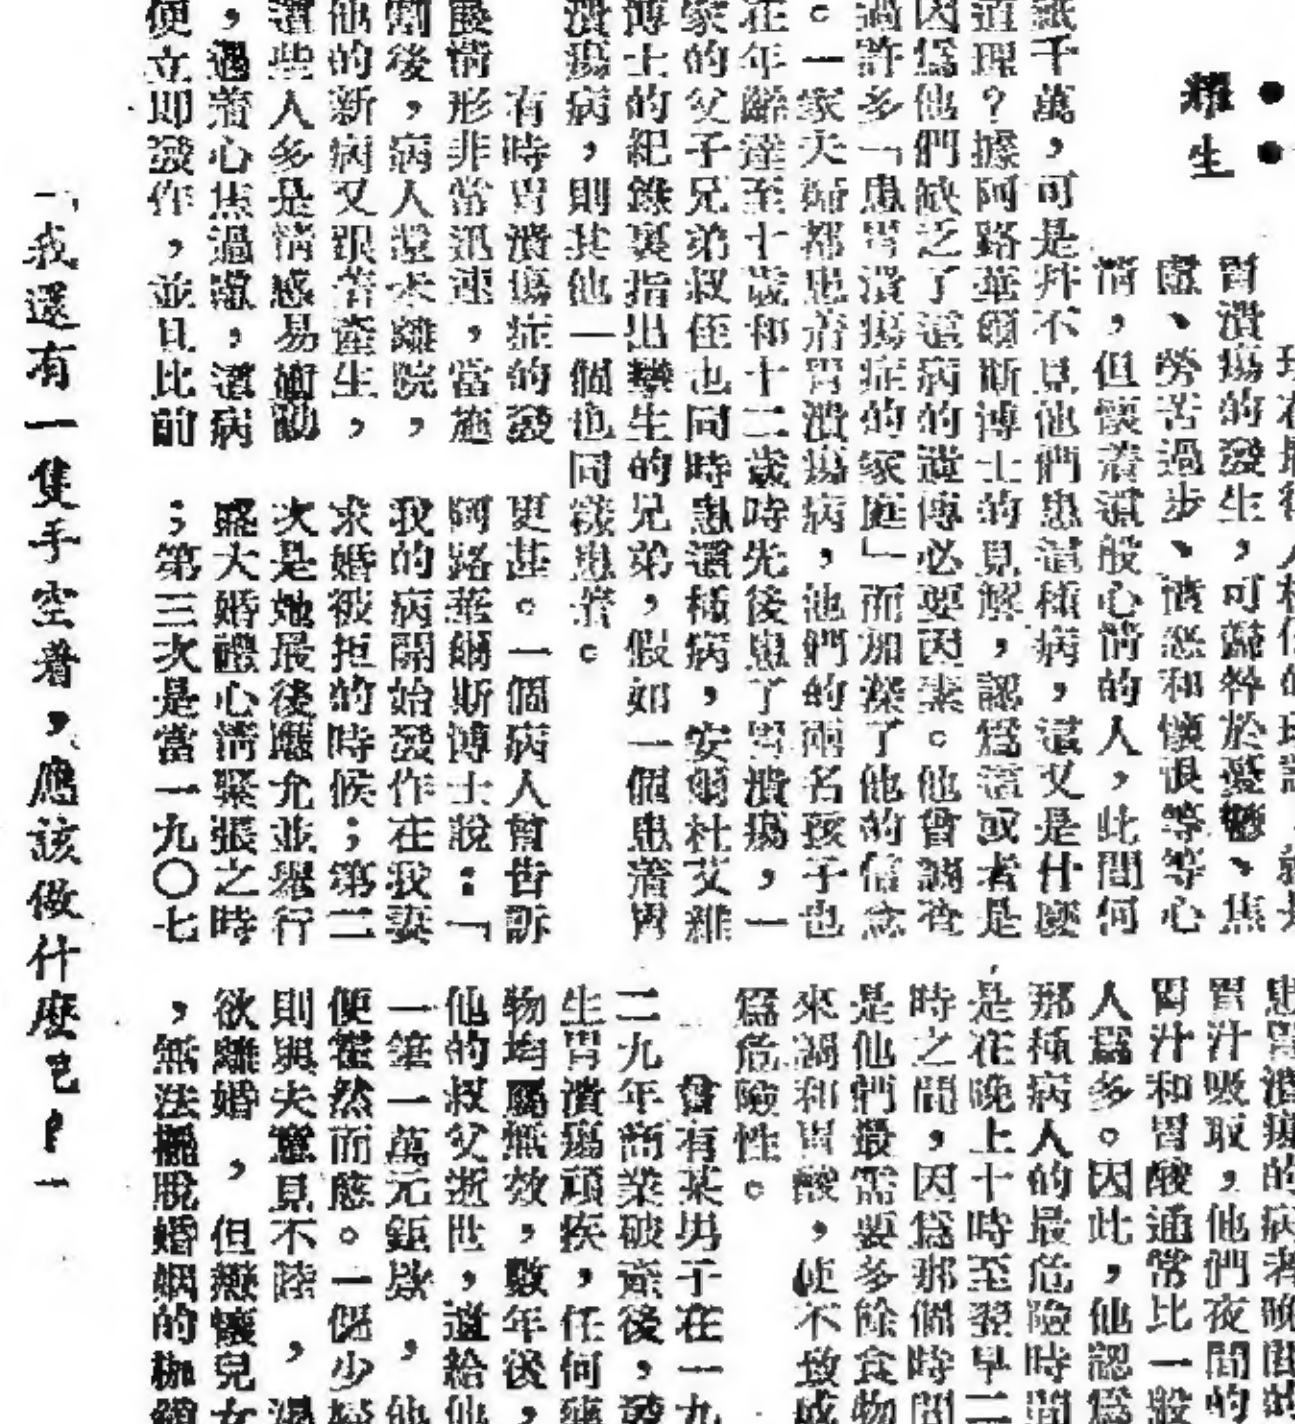 ●●
耀生
胃潰瘍的發生，可歸咎於憂鬱、焦
慮、勞苦過步、憤怒和懷恨等等心
情，但懷着這般心情的人，此間何
識千萬，可是幷不見他們患這種病，這又是什麼
道理？據阿路華爾斯博士的見解，認爲這或者是
因爲他們缺乏了這病的遺傳必要因素。他曾調查
過許多「患胃潰瘍症的家庭」而加深了他的信念
。一家夫婦都患着胃潰瘍病，他們的兩名孩子也
在年齡達至十歲和十二歲時先後患了胃潰瘍，一
家的父子兄弟叔侄也同時患這種病，安爾杜艾維
博士的紀錄裏指出孿生的兄弟，假如一個患着胃
潰瘍病，則其他一個也同樣患着。
有時胃潰瘍症的發
展情形非常迅速，當施
割後，病人還未離院，
他的新病又跟着產生，
這些人多是情感易衝動
，過着心焦過慮，這病
便立即發作，並且比前
更甚。一個病人曾告訴
阿路華爾斯博士說：「
我的病開始發作在我妻
求婚被拒的時候；第二
次是她最後應允並舉行
盛大婚禮心情緊張之時
；第三次是當一九〇七
患胃潰瘍的病者晚間的
胃汁吸取，他們夜間的
胃汁和胃酸通常比一般
人爲多。因此，他認爲
那種病人的最危險時間
是在晚上十時至翌早二
時之間，因爲那個時間
是他們最需要多餘食物
來調和胃酸，使不致成
爲危險性。
曾有某男子在一九
二九年商業破產後，發
生胃潰瘍頑疾，任何藥
物均屬無效，數年後，
他的叔父逝世，遺給他
一筆一萬元鉅款，他
便霍然而癒。一個少婦
則與夫意見不睦，渴
欲離婚，但繫懷兒女
，無法擺脫婚姻的枷鎖
「我還有一隻手空着，應該做什麼！」